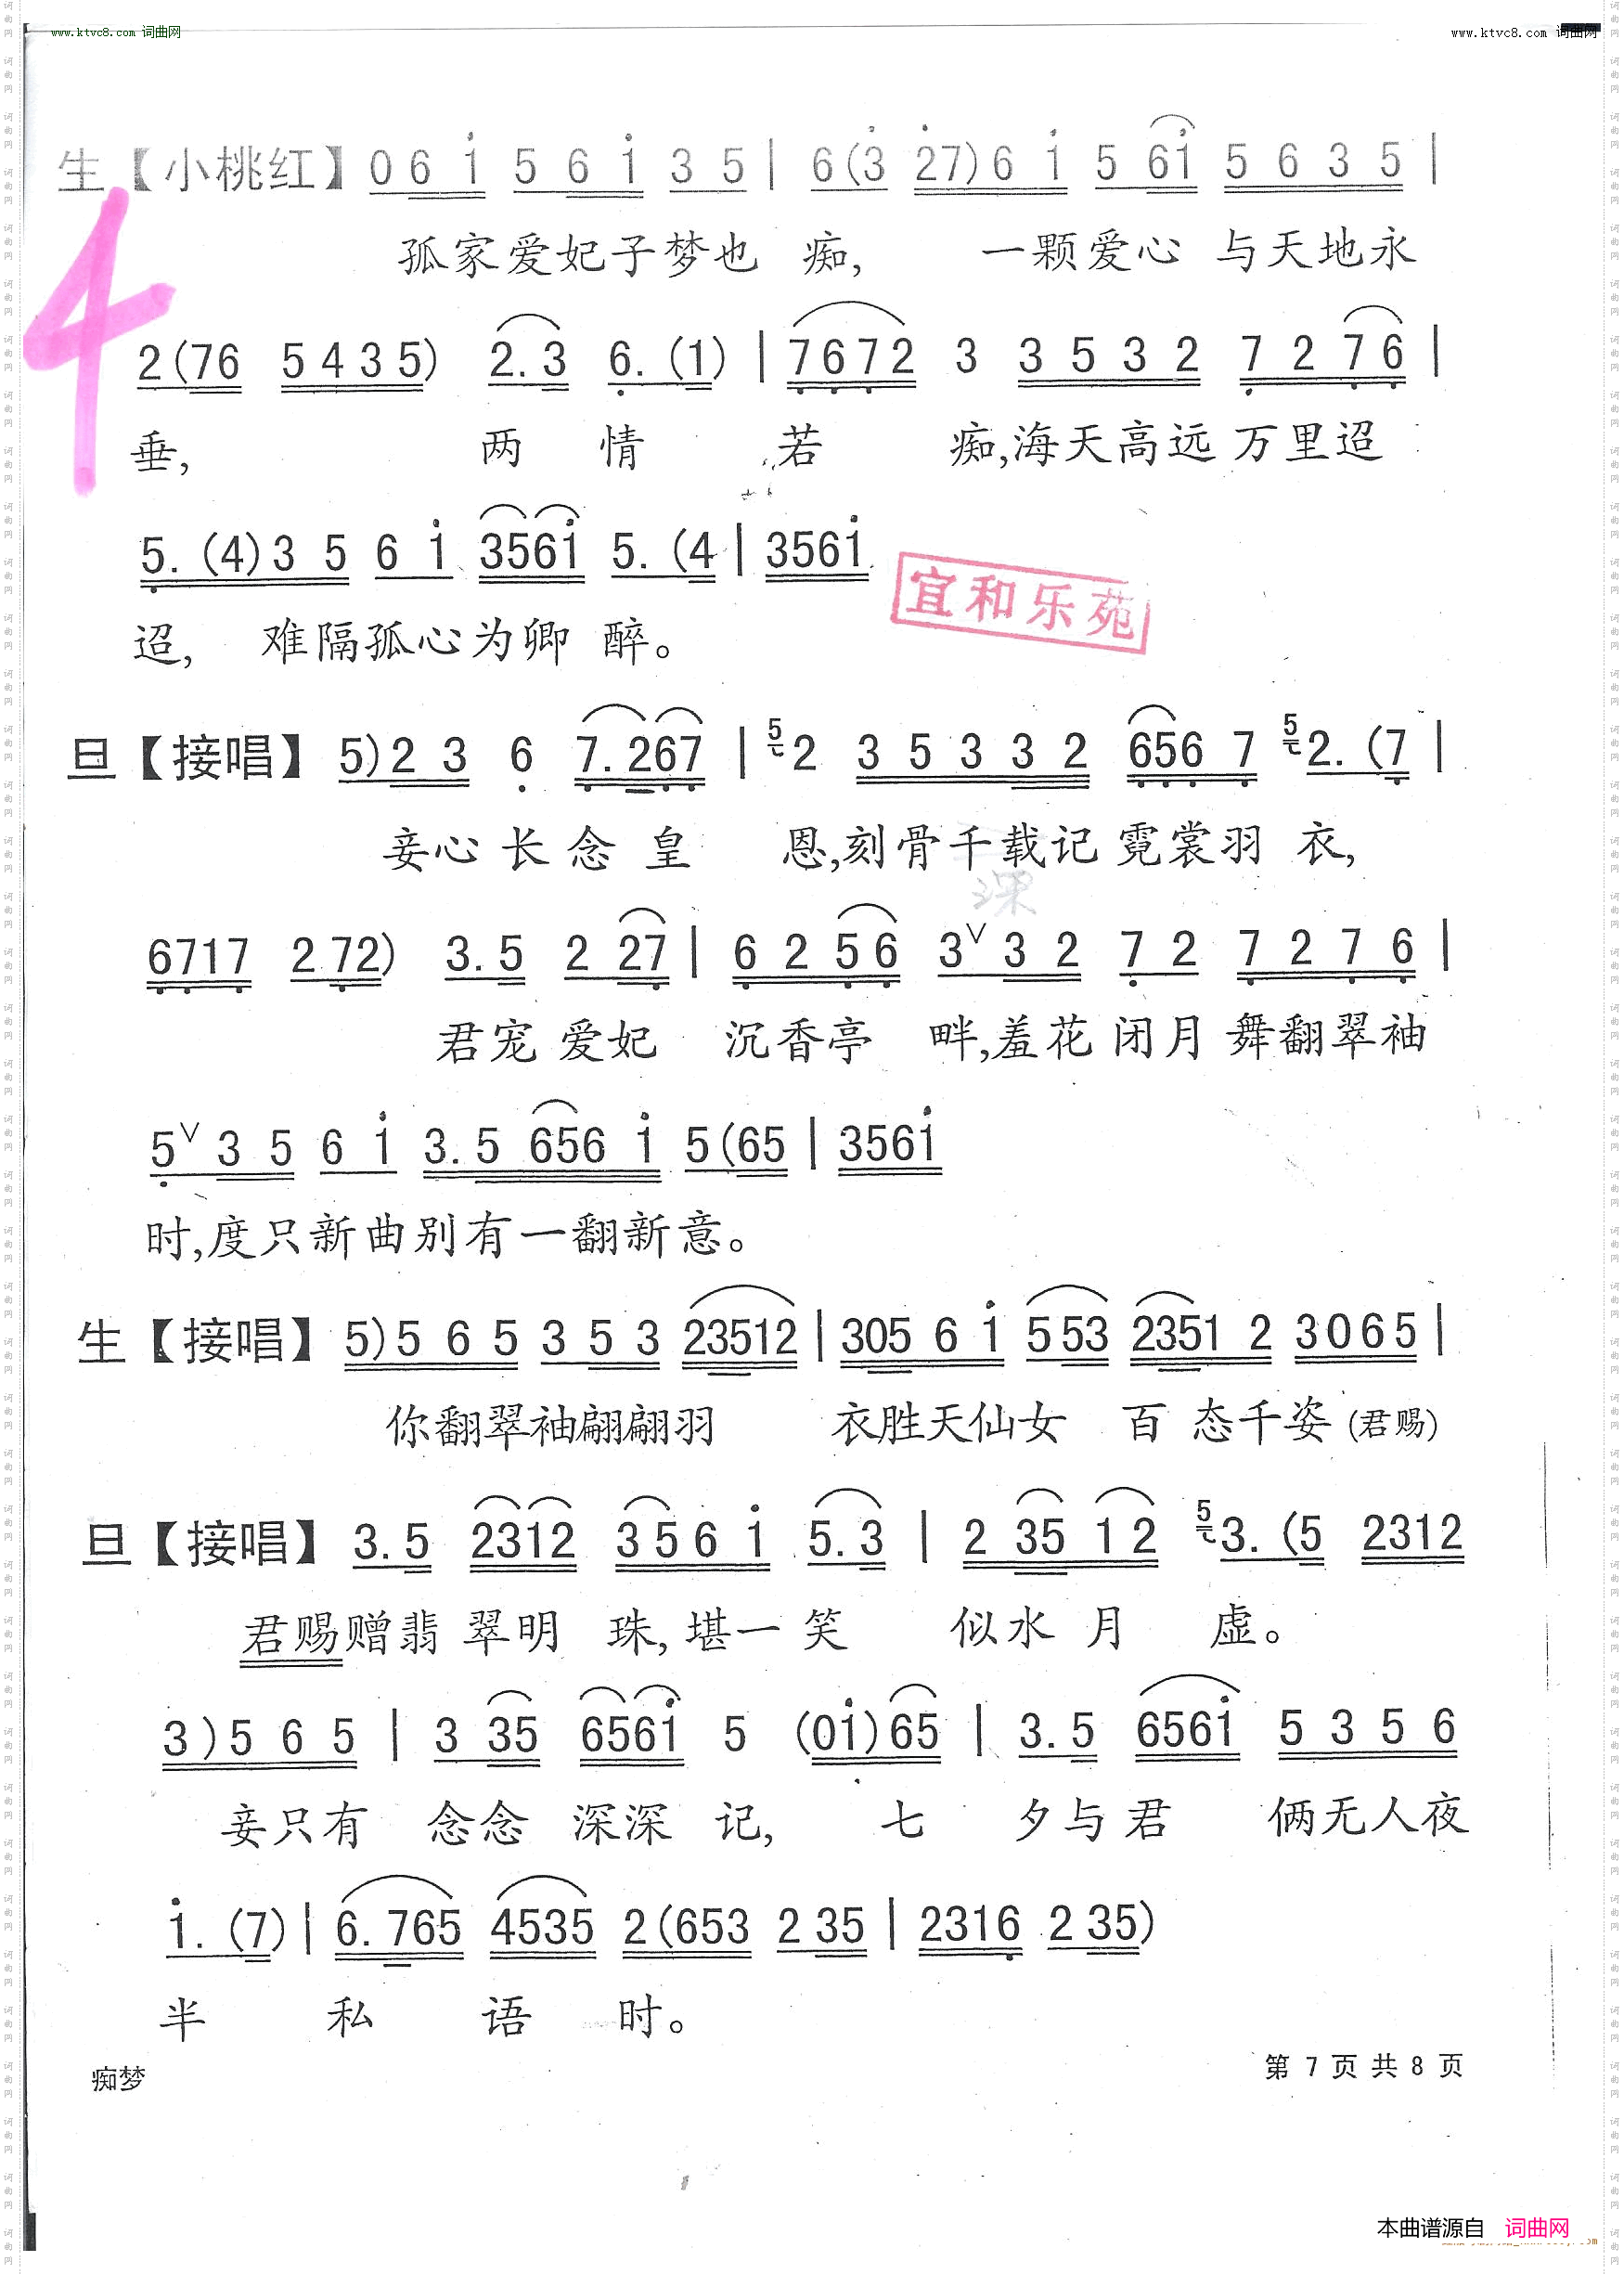 www.ktvc8.com 词曲网 www.ktvc8.com 词曲网
生【小桃红】0 6 i 5 6 i 3 5 | 6 (3 27) 6 i 5 6i 5 6 3 5 |
孤家爱妃子梦也 痴, 一颗爱心 与天地永
4
2 (76 5 4 3 5) 2. 3 6. (1) | 7 6 7 2 3 3 5 3 2 7 2 7 6 |
垂, 两 情 若 痴,海天高远 万里迢
5. (4) 3 5 6 i 356i 5. (4 | 356i
宜和乐苑
迢, 难隔孤心为卿 醉。
旦【接唱】5) 2 3 6 7. 267 | 5 2 3 5 3 3 2 656 7 5 2. (7 |
妾心 长 念 皇 恩,刻骨千载记 霓裳羽 衣,
深
6717 2 72) 3. 5 2 27 | 6 2 5 6 3 ∨ 3 2 7 2 7 2 7 6 |
君宠 爱妃 沉香亭 畔,羞花 闭月 舞翻翠袖
5 ∨ 3 5 6 i 3. 5 656 i 5 (65 | 356i
时,度只新曲别有一翻新意。
生【接唱】5) 5 6 5 3 5 3 23512 | 305 6 i 5 53 2351 2 3 0 6 5 |
你翻翠袖翩翩羽 衣胜天仙女 百 态千姿 (君赐)
旦【接唱】3. 5 2312 3 5 6 i 5. 3 | 2 35 1 2 5 3. (5 2312
君赐赠翡 翠明 珠, 堪一 笑 似水 月 虚。
3 ) 5 6 5 | 3 35 656i 5 (0i) 65 | 3. 5 656i 5 3 5 6
妾只有 念念 深深 记, 七 夕与 君 俩无人夜
i. (7) | 6. 765 4535 2 (653 2 35 | 2316 2 35)
半 私 语 时。
痴梦 第 7 页 共 8 页
本曲谱源自 词曲网